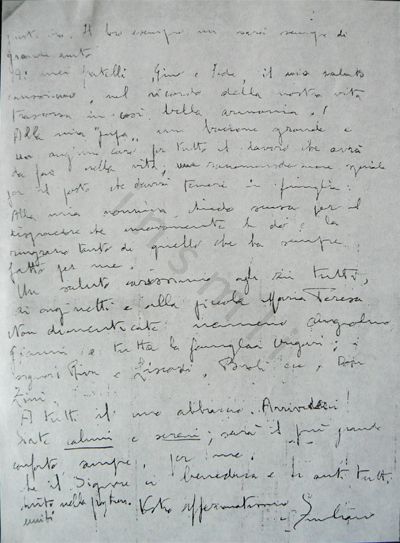 Il loro esempio mi sarà sempre di
grande aiuto
Ai miei fratelli, Gino e Fede, il mio saluto
carissimo, nel ricordo della nostra vita
trascorsa in così bella armonia!
Alla mia un bacione grande e
un augurio caro per tutto il lavoro che avrà
da fare nella vita; una raccomandazione speciale
per il posto che dovrà tenere in famiglia.
Alla mia nonnina, chiedo scusa per il
dispiacere che le dò; la
ringrazio tanto di quello che ha sempre
fatto per me.
Un saluto carissimo agli zii tutti,
ai cuginetti e alla piccola Maria Teresa
Non dimenticate nemmeno
e tutta la famiglia; i
signori Riva e Broli ecc., Don
Zini.
A tutti il mio abbraccio. Arrivederci!
Siate calmi e sereni; sarà il più grande
conforto sempre, per me.
Che il Signore ci benedica e ci aiuti tutti.
uniti nella preghiera.
Vostro affezionatissimo
Giuliano